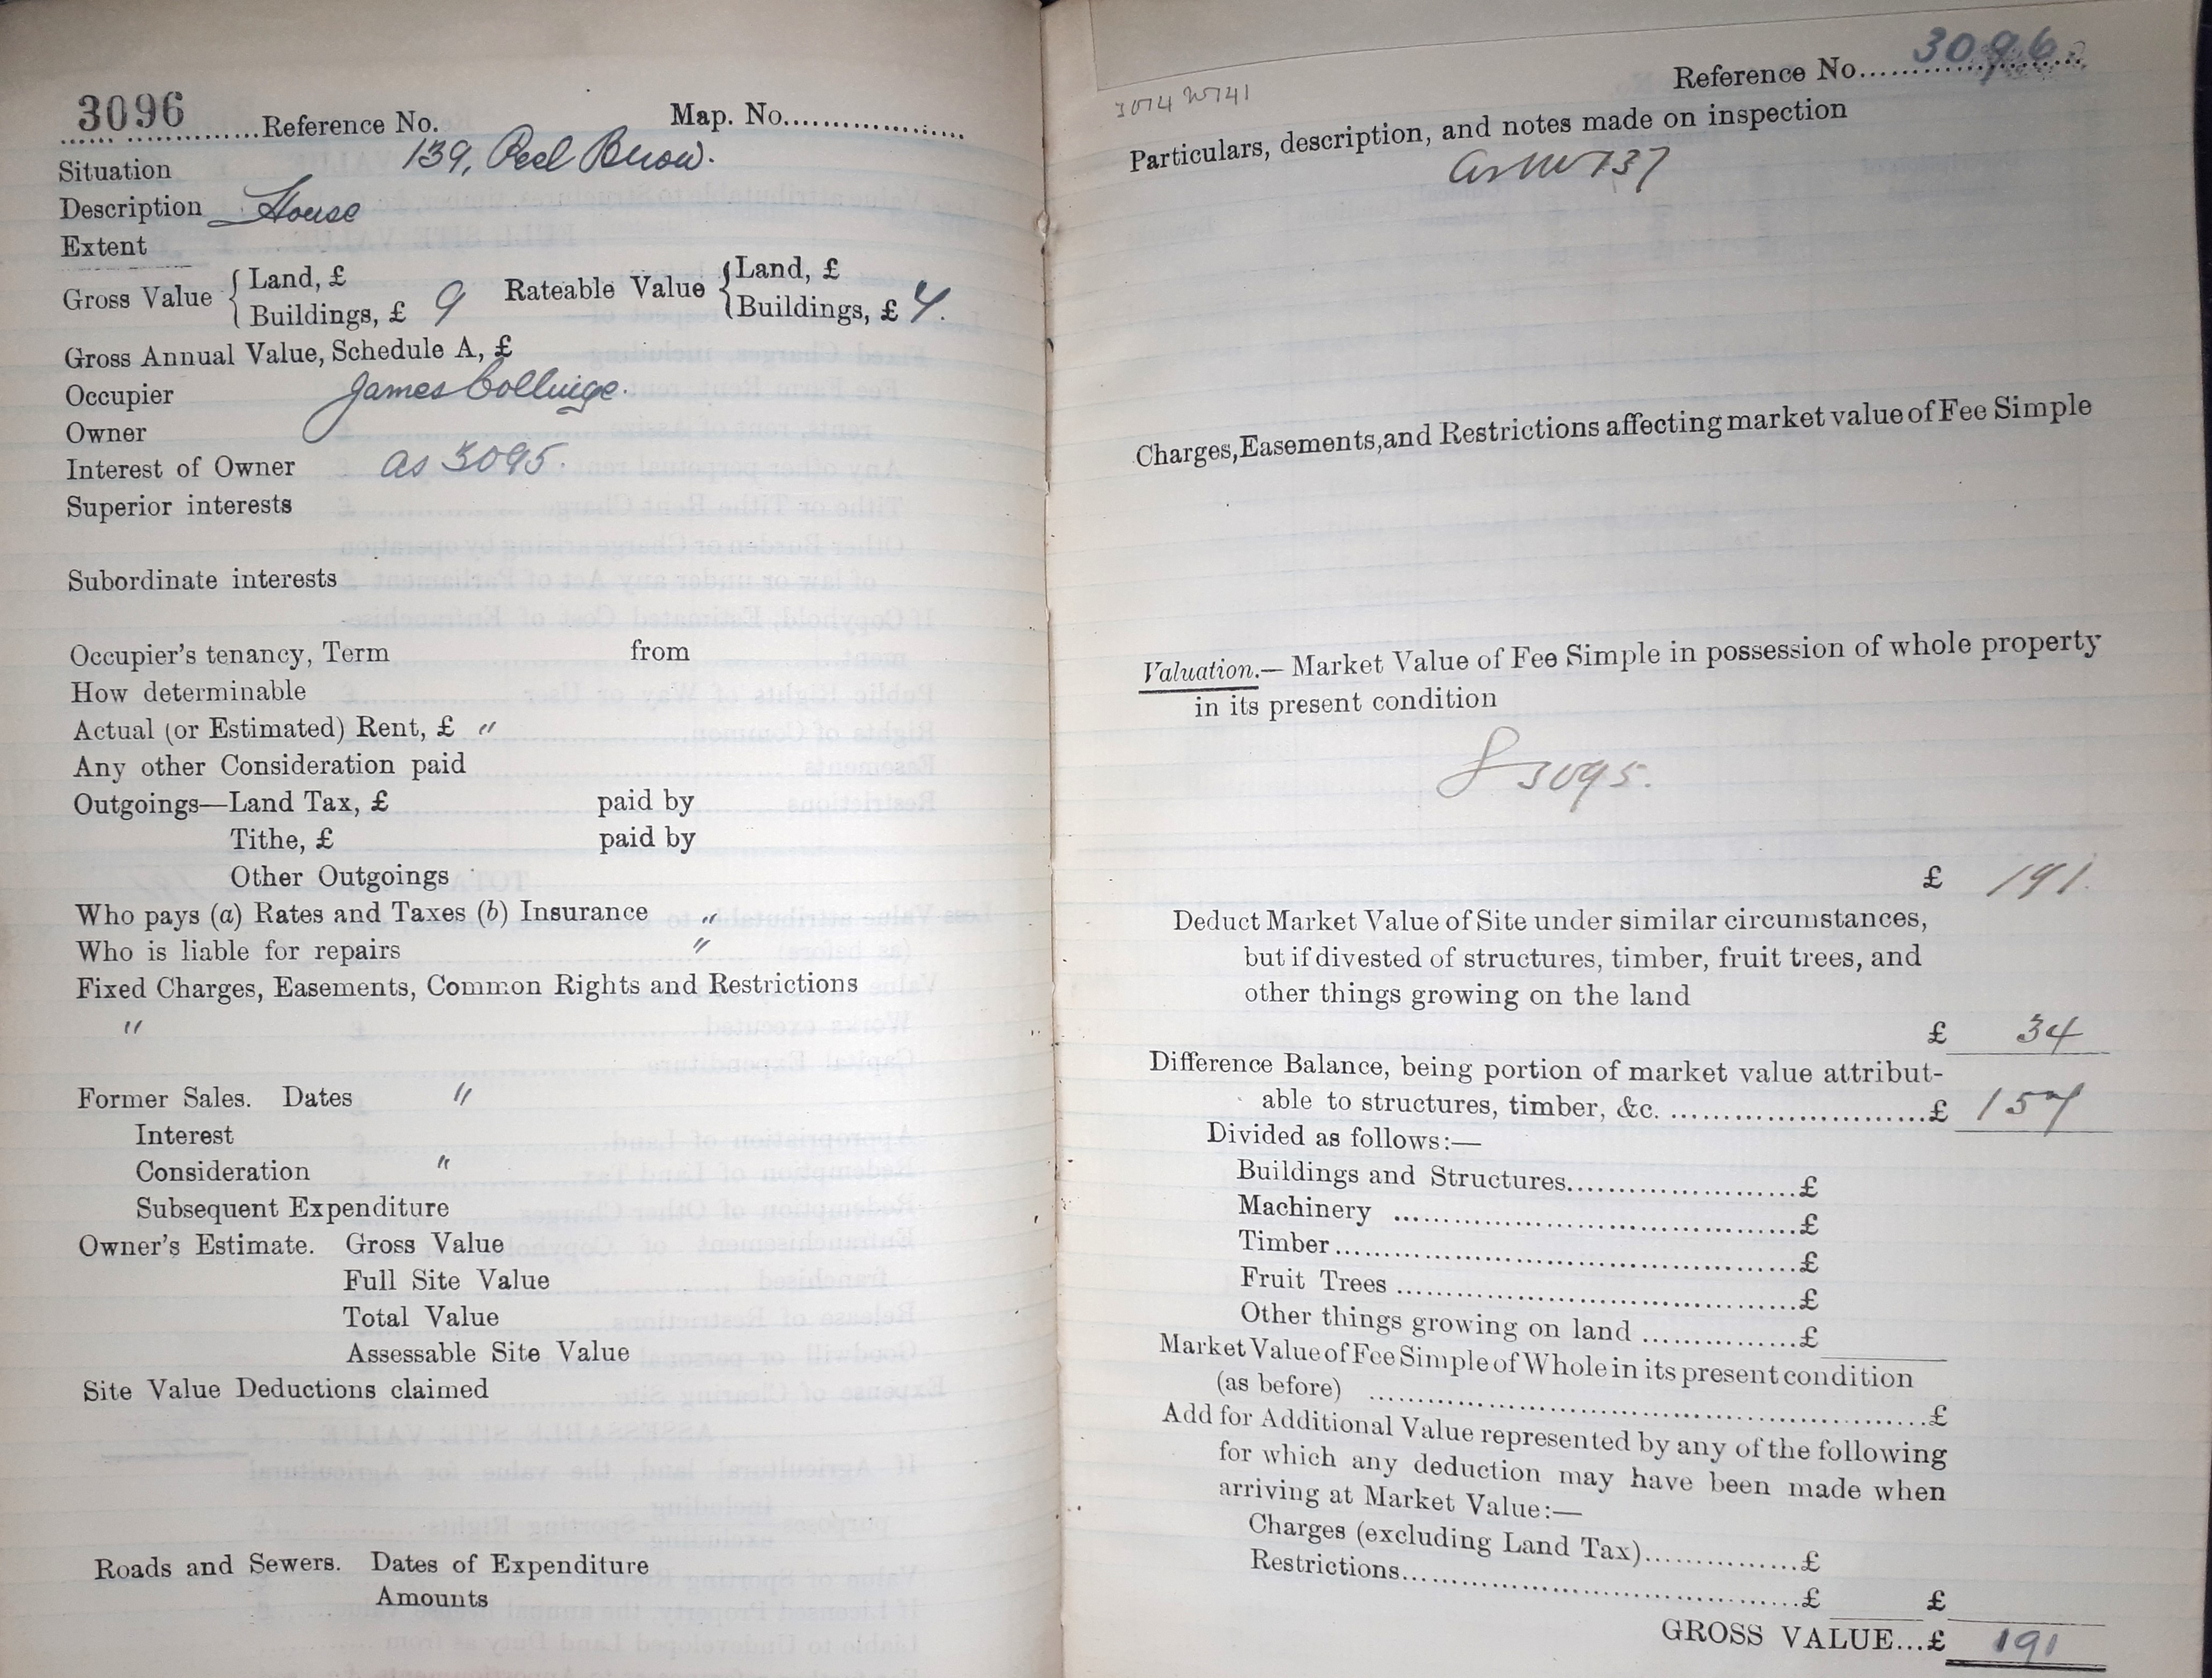 3096 Reference No. Map. No.
Situation 139, Peel Brow.
Description House
Extent
Gross Value { Land, £ Rateable Value { Land, £
Buildings, £ 9 Buildings, £ 4.
Gross Annual Value, Schedule A, £
Occupier James Collinge.
Owner
Interest of Owner as 3095.
Superior interests
Subordinate interests
Occupier's tenancy, Term from
How determinable
Actual (or Estimated) Rent, £ "
Any other Consideration paid
Outgoings—Land Tax, £ paid by
Tithe, £ paid by
Other Outgoings
Who pays (a) Rates and Taxes (b) Insurance "
Who is liable for repairs "
Fixed Charges, Easements, Common Rights and Restrictions
"
Former Sales. Dates "
Interest
Consideration "
Subsequent Expenditure
Owner's Estimate. Gross Value
Full Site Value
Total Value
Assessable Site Value
Site Value Deductions claimed
Roads and Sewers. Dates of Expenditure
Amounts
Reference No. 3096
Particulars, description, and notes made on inspection
137
Charges, Easements, and Restrictions affecting market value of Fee Simple
Valuation.— Market Value of Fee Simple in possession of whole property
in its present condition
3095.
£ 191.
Deduct Market Value of Site under similar circumstances,
but if divested of structures, timber, fruit trees, and
other things growing on the land
£ 34
Difference Balance, being portion of market value attribut-
able to structures, timber, &c. £ 157
Divided as follows:—
Buildings and Structures £
Machinery £
Timber £
Fruit Trees £
Other things growing on land £
Market Value of Fee Simple of Whole in its present condition
(as before) £
Add for Additional Value represented by any of the following
for which any deduction may have been made when
arriving at Market Value:—
Charges (excluding Land Tax) £
Restrictions £ £
GROSS VALUE... £ 191